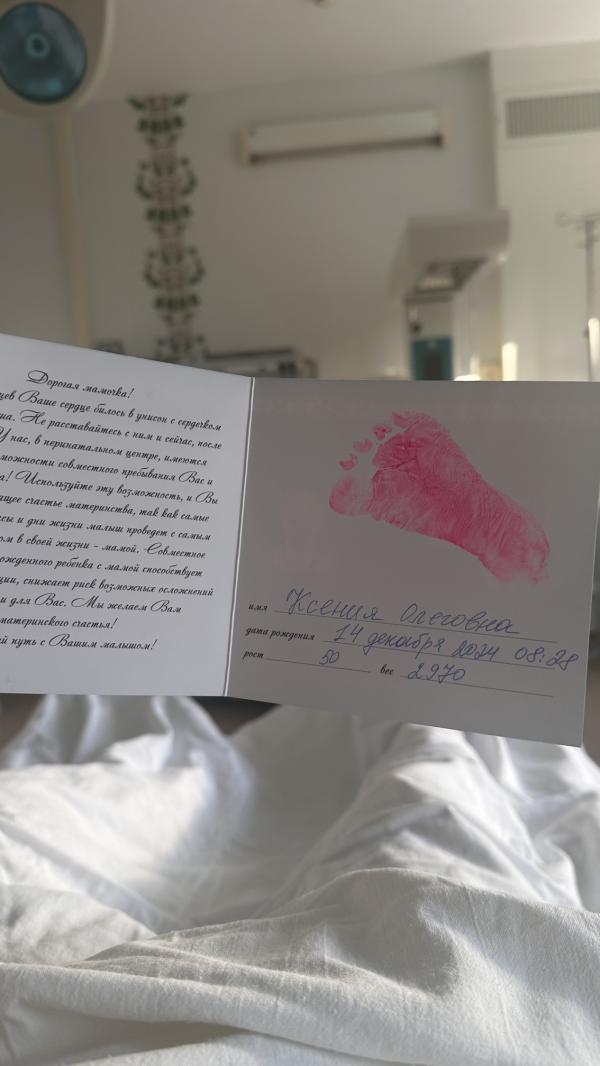 Дорогая мамочка!
цев Ваше сердце билось в унисон с сердечком
ша. Не расставайтесь с ним и сейчас, после
У нас, в перинатальном центре, имеются
зможности совместного пребывания Вас и
а! Используйте эту возможность, и Вы
ящее счастье материнства, так как самые
сы и дни жизни малыш проведет с самым
ом в своей жизни - мамой. Совместное
рожденного ребенка с мамой способствует
ции, снижает риск возможных осложнений
и для Вас. Мы желаем Вам
материнского счастья!
й путь с Вашим малышом!
имя Ксения Олеговна
дата рождения 14 декабря 2024 08:28
рост 50 вес 2970